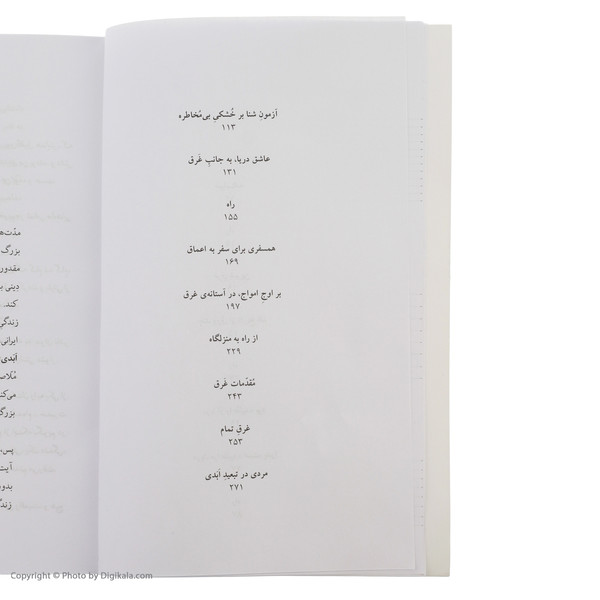 آزمونِ شنا بر خُشکیِ بی‌مُخاطره
۱۱۳
عاشق دریا، به جانبِ غَرق
۱۳۱
راه
۱۵۵
همسفری برای سفر به اعماق
۱۶۹
بر اوجِ امواج، در آستانه‌ی غرق
۱۹۷
از راه به منزلگاه
۲۲۹
مُقدّمات غَرق
۲۴۳
غرقِ تمام
۲۵۳
مردی در تبعیدِ اَبَدی
۲۷۱
مدّت‌ها
بزرگ
مَقدور
دینی
کند.
زندگی
ایرانی
اَبَدی
می‌کند
بزرگ
پس،
Copyright © Photo by Digikala.com